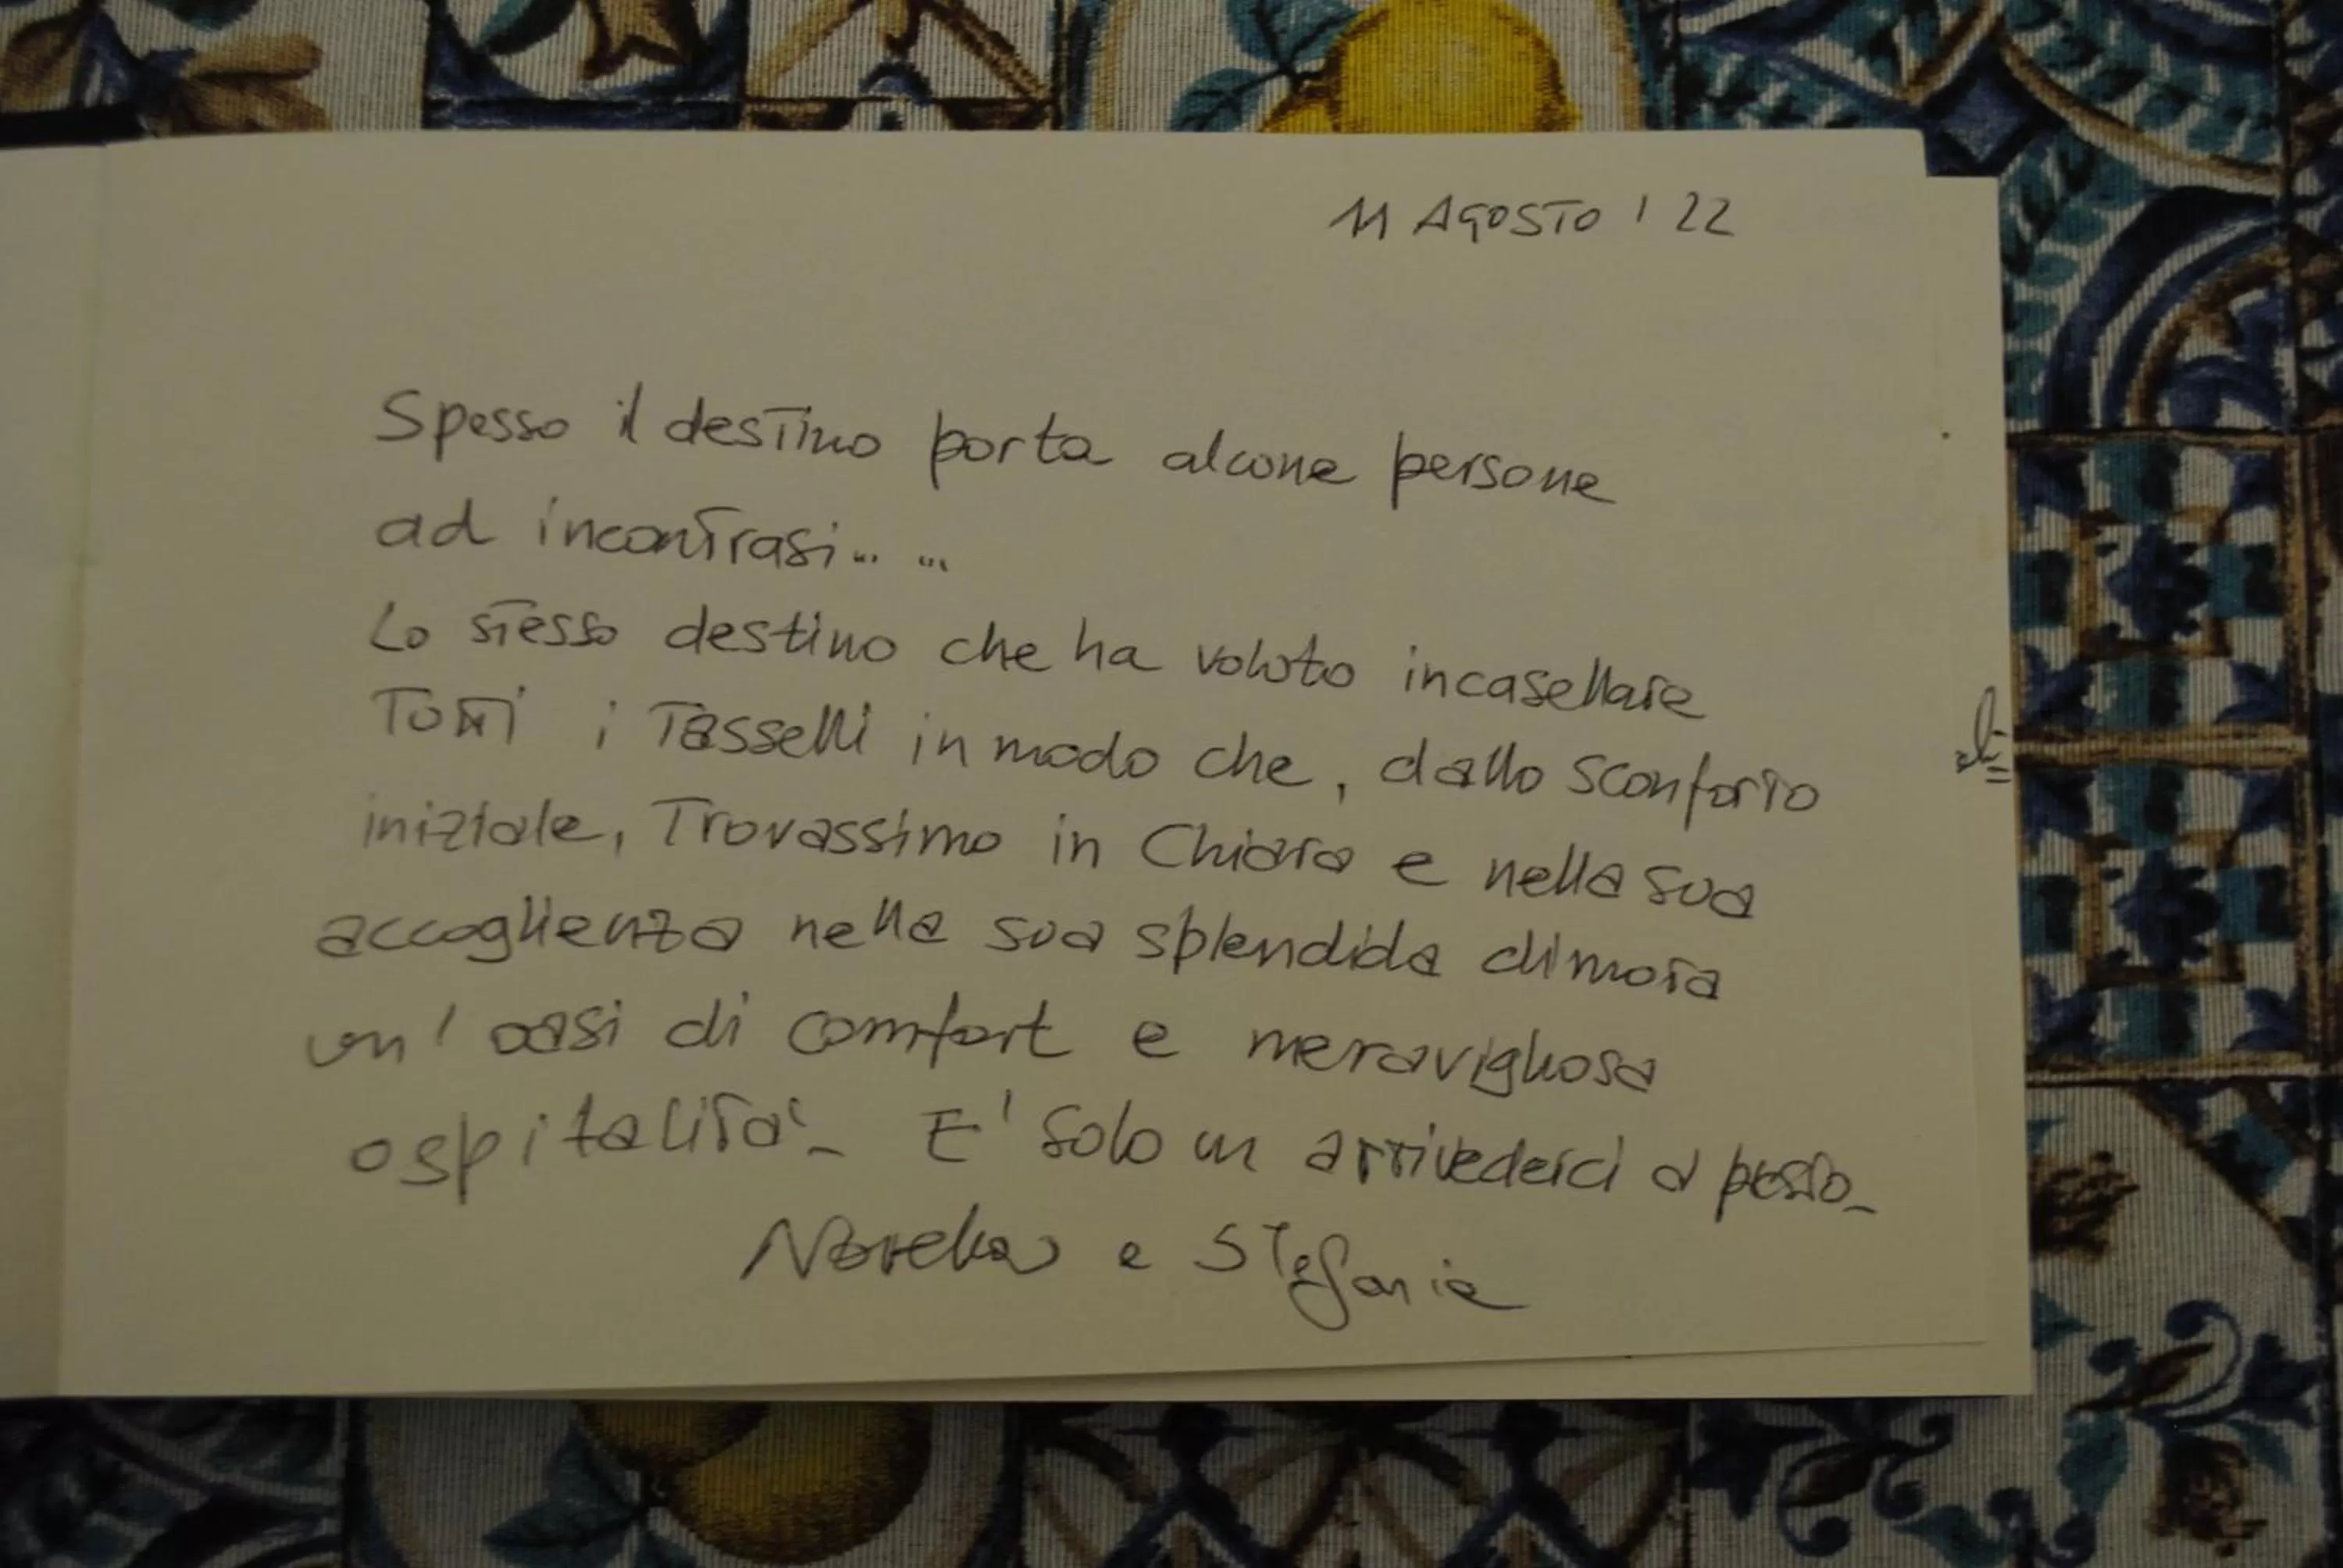 11 AGOSTO '22
Spesso il destino porta alcune persone
ad incontrasi... ...
Lo stesso destino che ha voluto incasellare
Tutti i Tasselli in modo che, dallo sconforto
iniziale, Trovassimo in Chiara e nella sua
accoglienza nella sua splendida dimora
un' oasi di comfort e meravigliosa
ospitalità. E' solo un arrivederci a presto.
e Stefania